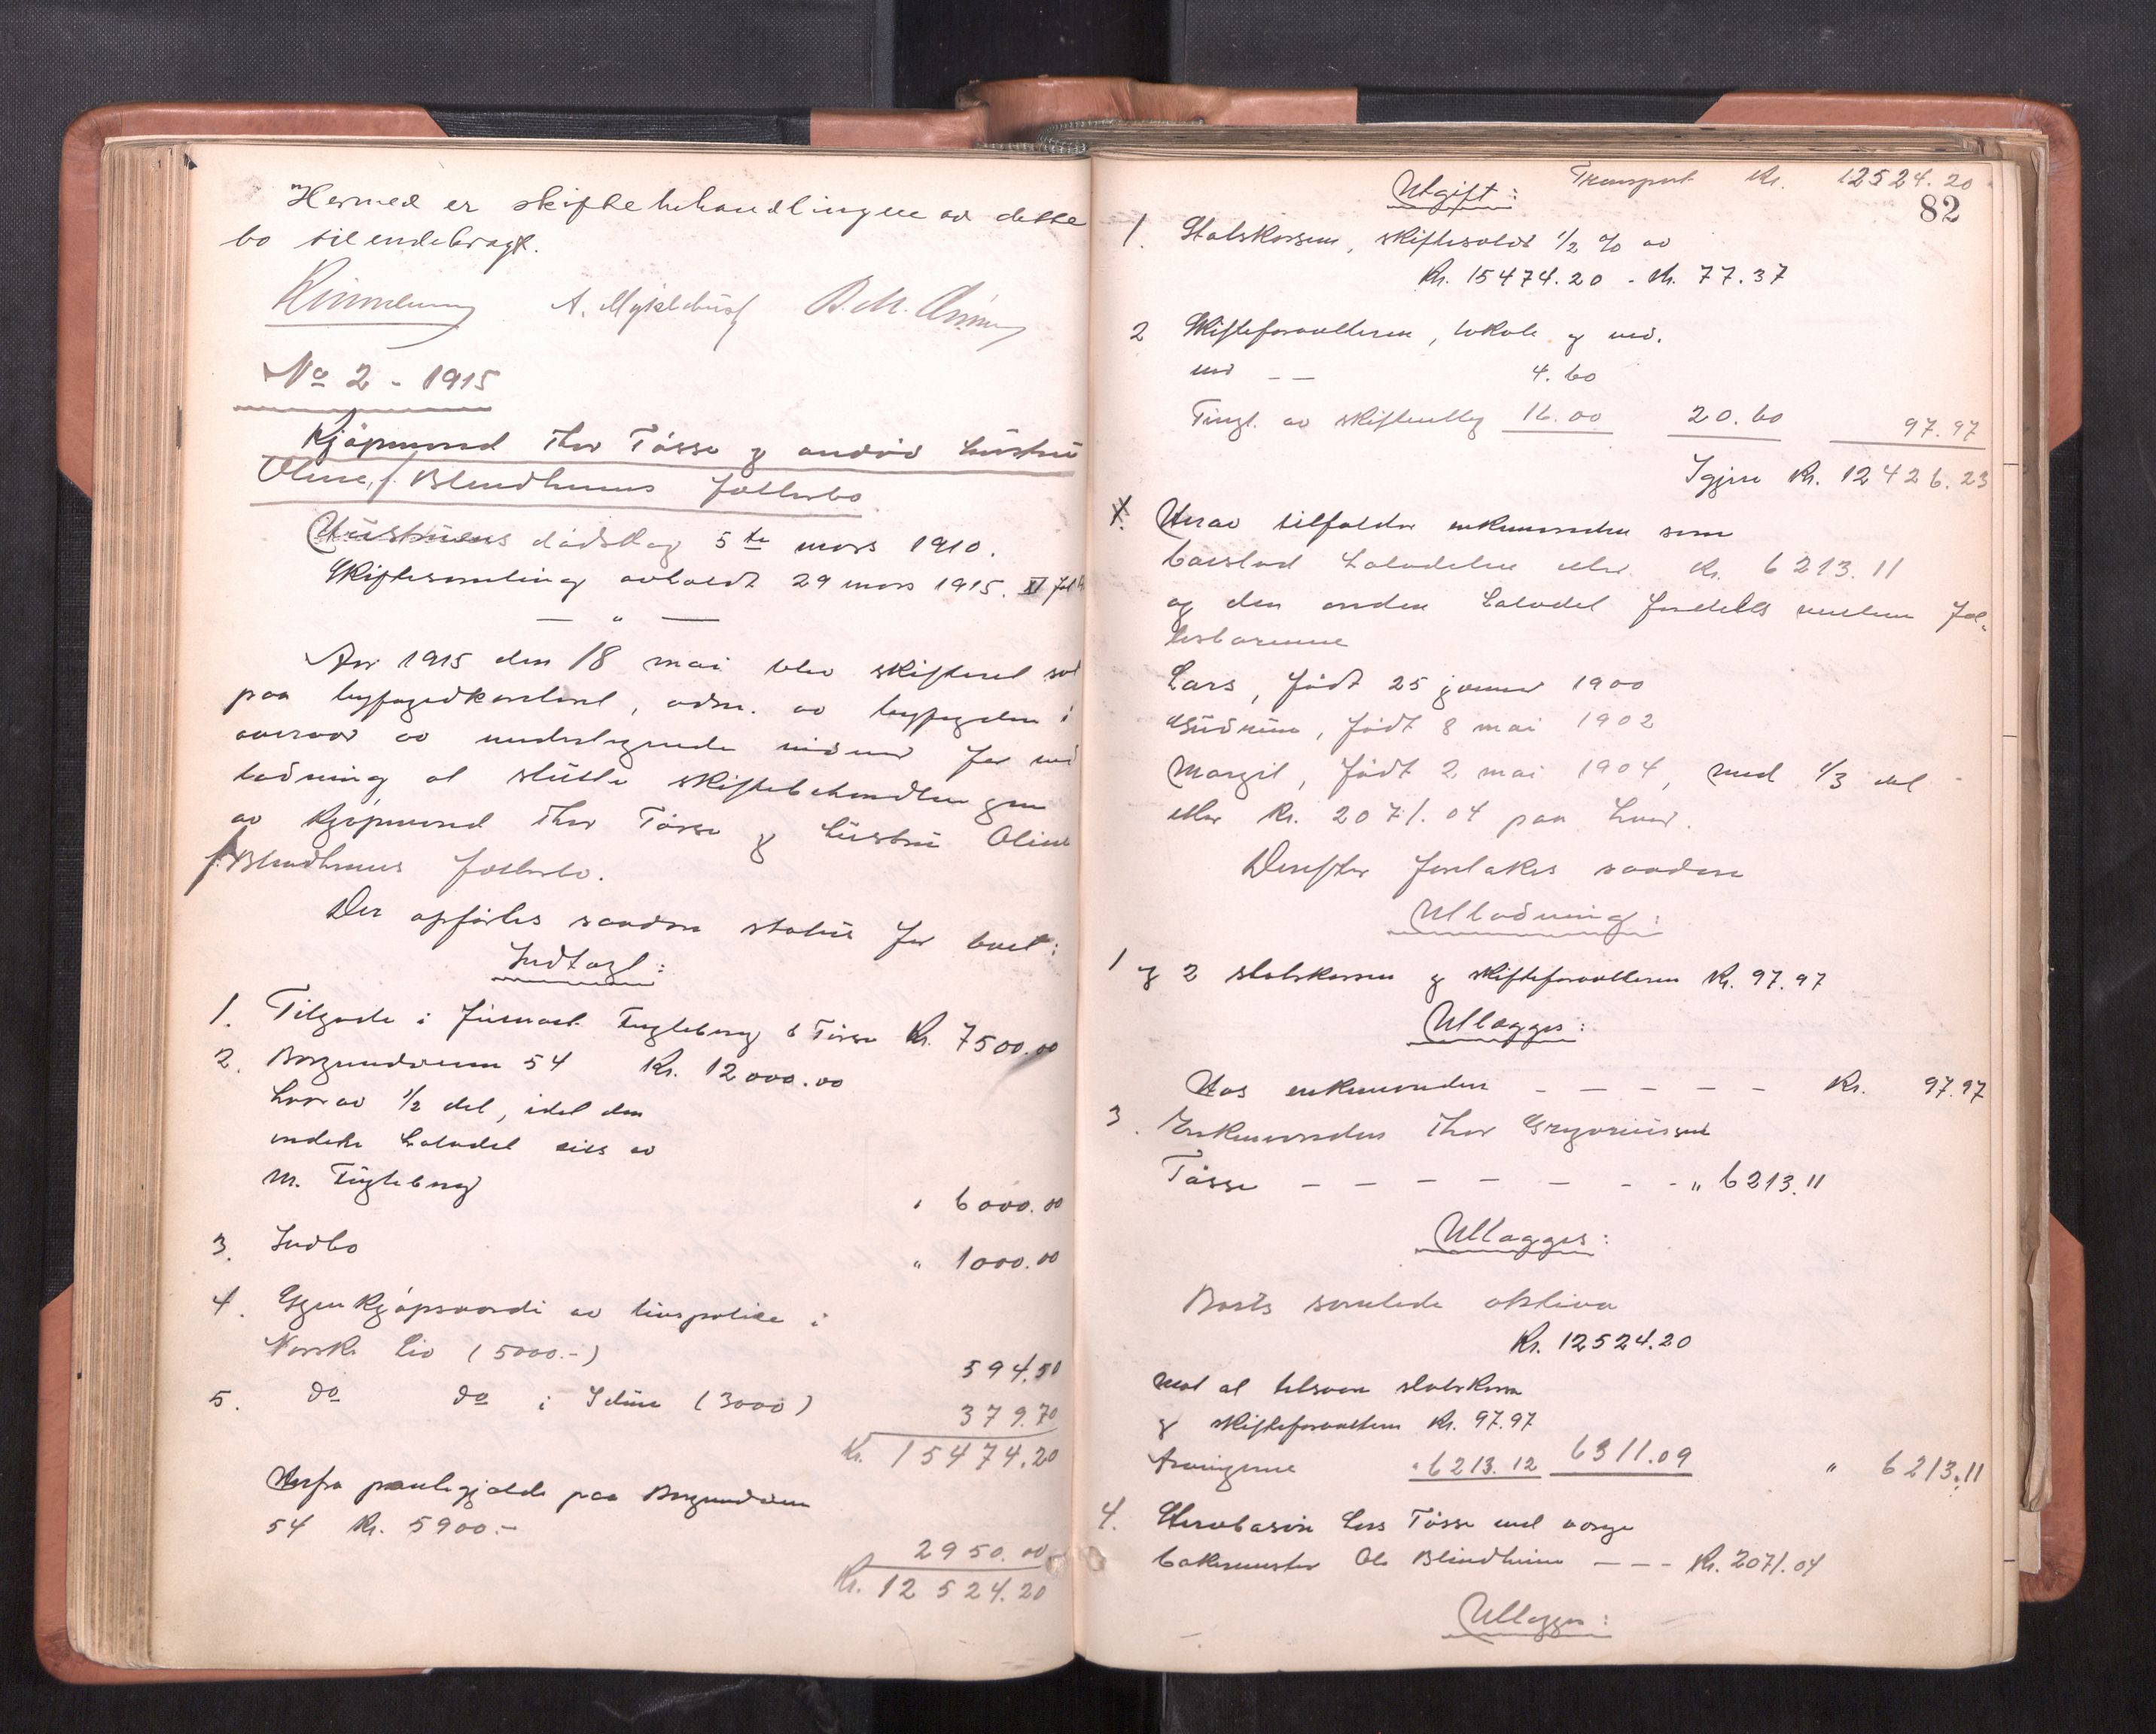 Hermed er skiftebehandlingen av dette
bo tilendebragt.
A. Myklebust
No 2 - 1915
Kjøpmand Thor Tøsse og avdød hustru
Oline, f. Blindheims fællesbo
Hustruens dødsdag 5te mars 1910.
Skiftesamling avholdt 29 mars 1915. XI fol
— " —
Aar 1915 den 18 mai blev skifteret sat
paa byfogedkontoret, adm. av byfogden i
overvær av undertegnede vidner for ved
lodning at slutte skiftebehandlingen
av kjøpmand Thor Tøsse og hustru Oline
f. Blindheims fællesbo.
Der opførtes saadan status for boet:
Indtægt:
1. Tilgode i firmaet Fugleberg & Tøsse Kr. 7500.00
2. Borgundveien 54 Kr. 12000.00
herav 1/2 del, idet den
anden halvdel eies av
M. Fugleberg " 6000.00
3. Indbo " 1000.00
4. Gjenkjøpsværdi av livspolice i
Norske Liv (5000.-) 594.50
5. do do i Idun (3000) 379.70
Kr. 15474.20
Herfra pantegjæld paa Borgundveien
54 Kr. 5900.- 2950.00
Kr. 12524.20
Transport Kr. 12524.20
82
Utgift:
1. Statskassen, skiftesold 1/2 % av
Kr. 15474.20 - Kr. 77.37
2 Skifteforvalteren, lokale og vid.
ved — — 4.60
Tingl. av skifteutlæg 16.00 20.60 97.97
Igjen Kr. 12426.23
X Herav tilfalder enkemanden som
boeslod halvdelen eller Kr. 6213.11
og den anden halvdel fordeles mellem fæl-
lesbarnene
Lars, født 25 januar 1900
Gudrun, født 8 mai 1902
Margit, født 2 mai 1904, med 1/3 del
eller Kr. 2071.04 paa hver.
Derefter foretakes saadan
Utlodning:
1 og 2 statskassen og skifteforvalteren Kr. 97.97
Utlægges:
Hos enkemanden — — — — — Kr. 97.97
3. Enkemanden Thor Gregoriussen
Tøsse — — — — — - - " 6213.11
Utlægges:
Boets samlede aktiva
Kr. 12524.20
mot at tilsvare statskassen
og skifteforvalteren Kr. 97.97
Arvingerne " 6213.12 6311.09 " 6213.11
4. Stervbøsøn Lars Tøsse ved verge
bakermester Ole Blindheim — — - Kr. 2071.04
Utlægges: